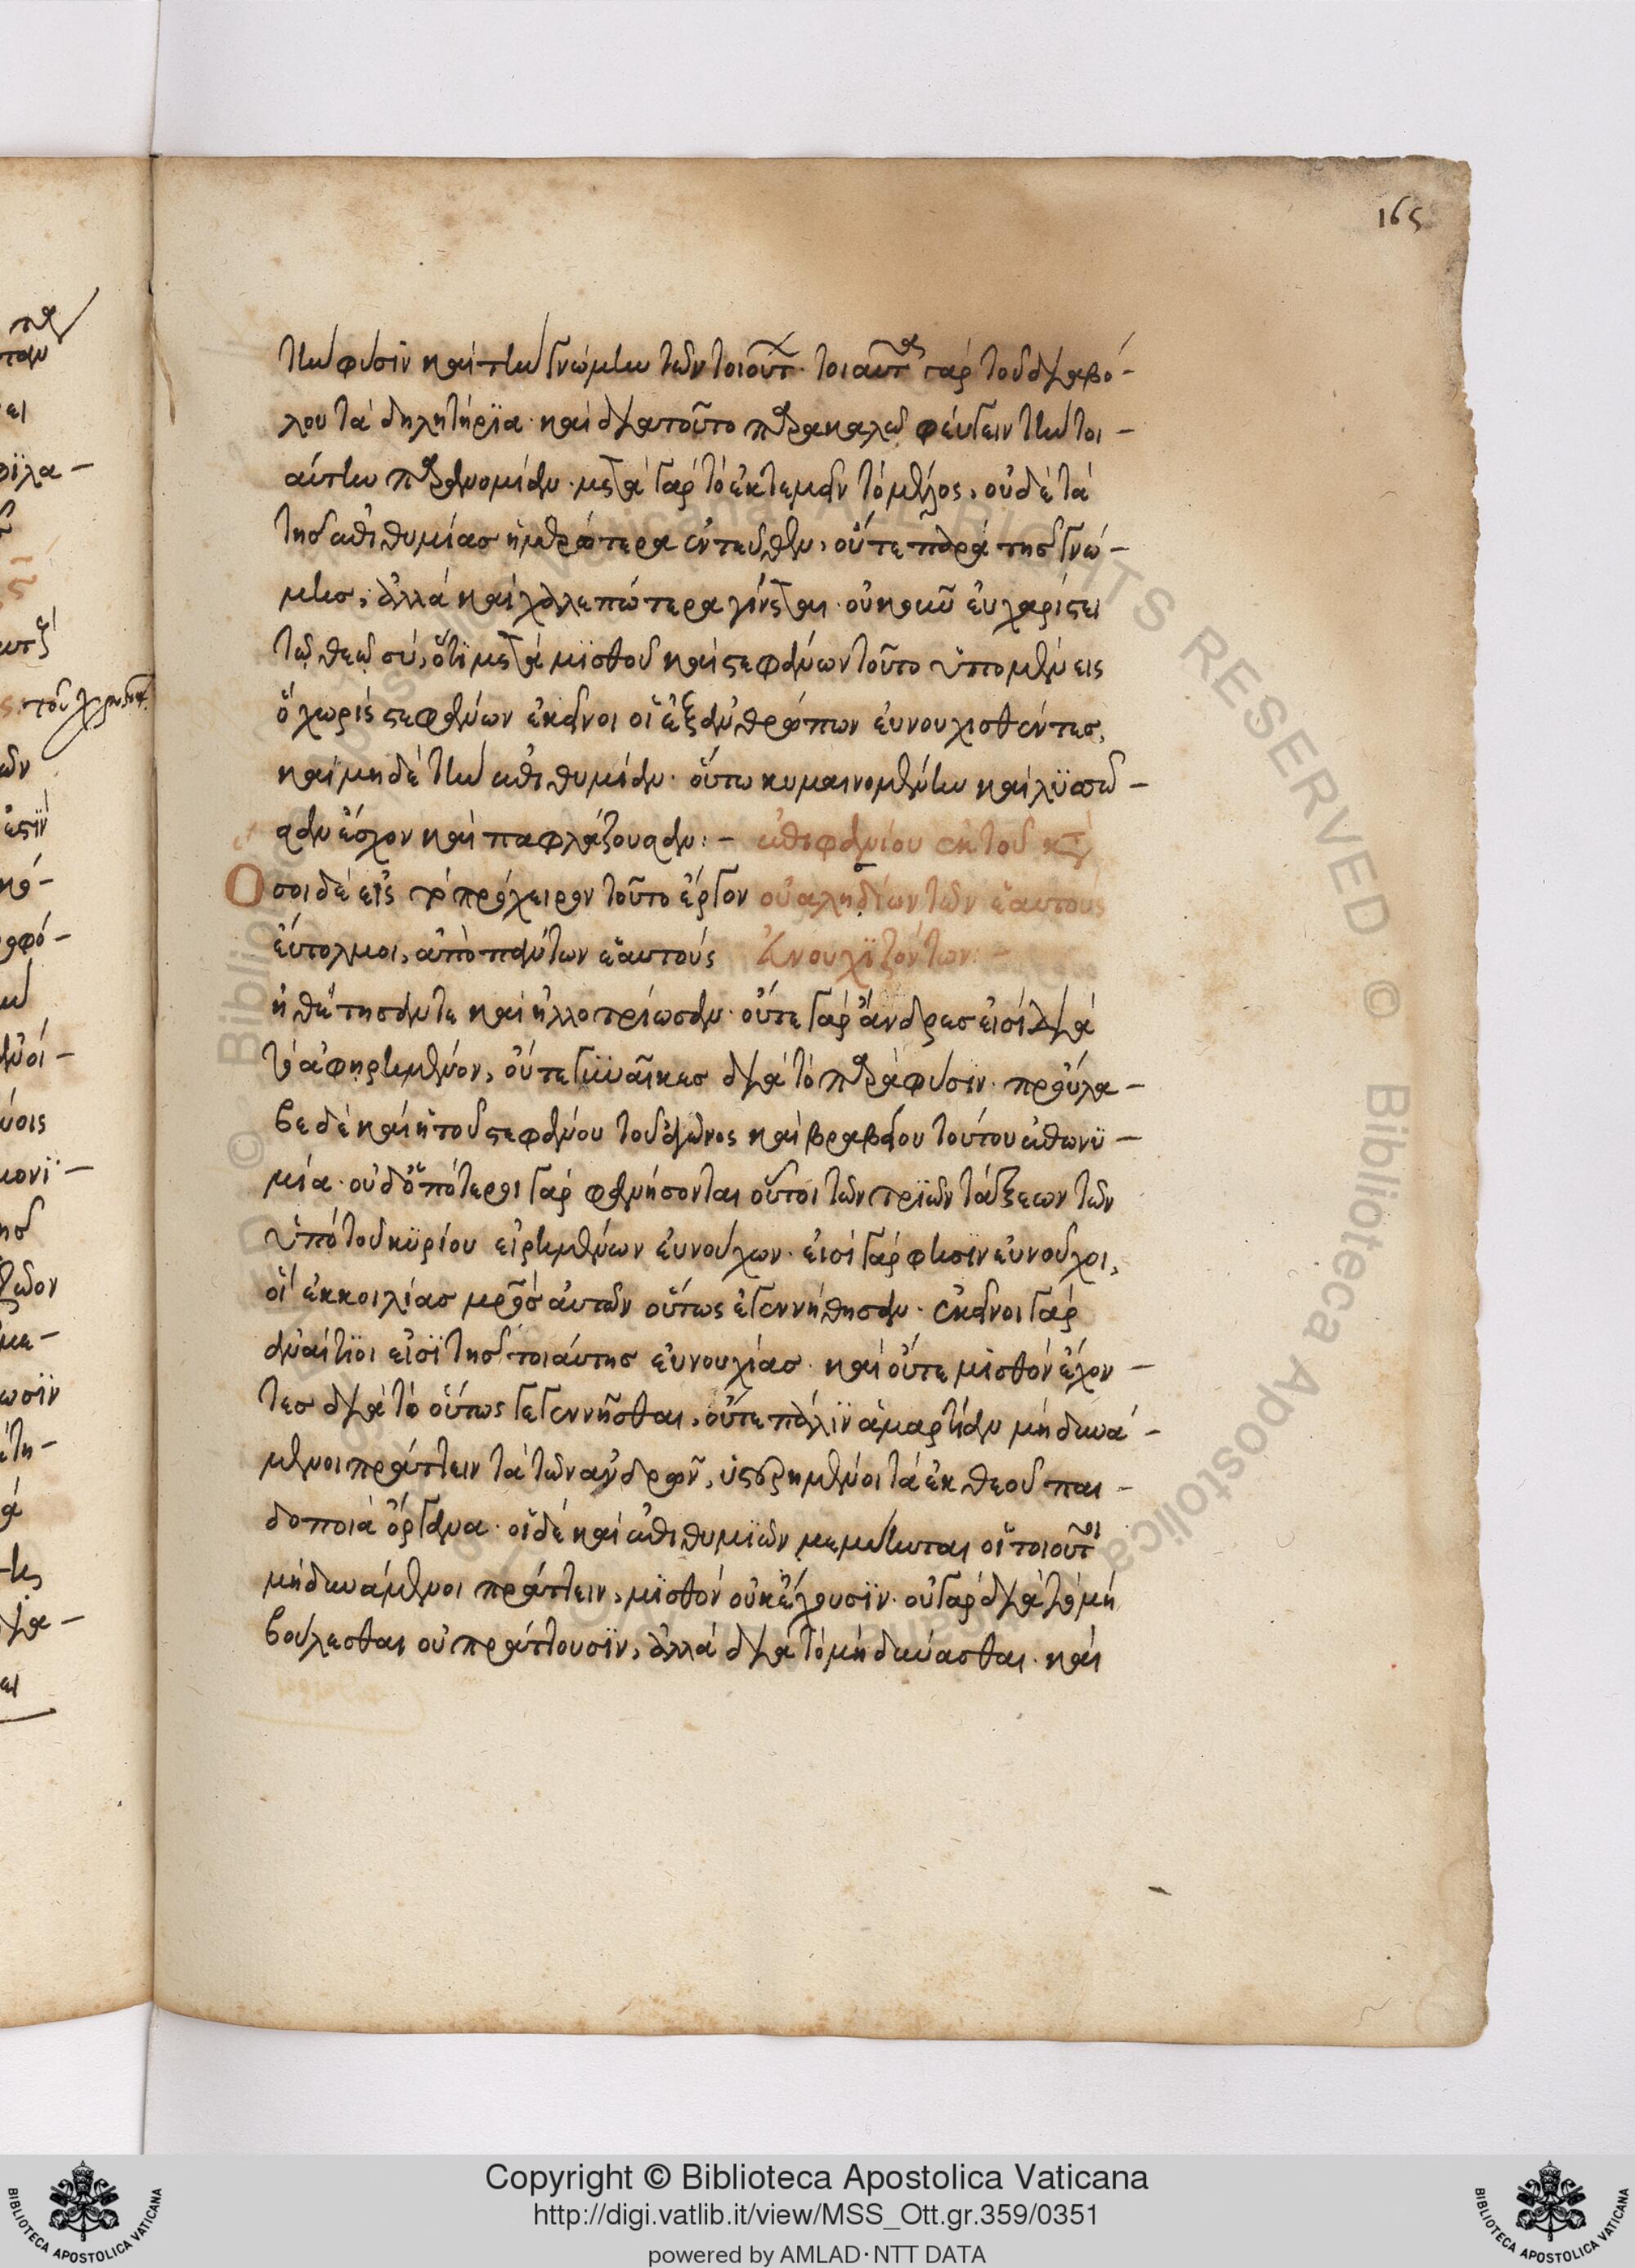 165
τὴν φύσιν καὶ τὴν γνώμην τῶν τοιούτ. τοιαῦτα γὰρ τοῦ διαβό-
λου τὰ δηλητήρια. καὶ διατοῦτο παρακαλῶ φεύγειν τὴν τοι-
αύτην παρανομίαν. μετὰ γὰρ τὸ ἐκτεμεῖν τὸ μέλος, οὐδὲ τὰ
τῆς ἐπιθυμίας ἡμερώτερα ἐντεῦθεν, οὔτε παρὰ τῆς γνώ-
μης, ἀλλὰ καὶ χαλεπώτερα γίνεται. οὐκοῦν εὐχαρίστει
τῷ θεῷ σύ, ὅτι μετὰ μισθοῦ καὶ στεφάνων τοῦτο ὑπομένεις
ὃ χωρὶς στεφάνων ἐκεῖνοι οἱ ἐξ ἀνθρώπων εὐνουχισθέντες,
καὶ μηδὲ τὴν ἐπιθυμίαν. οὕτω κυμαινομένην καὶ λυσσῶ-
σαν ἔσχον καὶ παφλάζουσαν:- ἐπιφανίου ἐκ τοῦ κατὰ
Ὅσοι δὲ εἰς τὸ πρόχειρον τοῦτο ἔργον οὐαλησίων τῶν ἑαυτοὺς
εὔτολμοι, ἀπὸ πάντων ἑαυτοὺς εὐνουχιζόντων:-
ἠθέτησάν τε καὶ ἠλλοτρίωσαν. οὔτε γὰρ ἄνδρες εἰσὶ διὰ
τὸ ἀφῃρημένον, οὔτε γυναῖκες διὰ τὸ παρὰ φύσιν. προύλα-
βε δὲ καὶ ἡ τοῦ στεφάνου τοῦ ἀγῶνος καὶ βραβείου τούτου ἐπωνυ-
μία. οὐδ' ὁπότεροι γὰρ φανήσονται οὗτοι τῶν τριῶν τάξεων τῶν
ὑπὸ τοῦ κυρίου εἰρημένων εὐνούχων. εἰσὶ γὰρ φησὶν εὐνοῦχοι,
οἳ ἐκ κοιλίας μρὸς αὐτῶν οὕτως ἐγεννήθησαν. ἐκεῖνοι γὰρ
ἀναίτιοι εἰσὶ τῆς τοιαύτης εὐνουχίας. καὶ οὔτε μισθὸν ἔχον-
τες διὰ τὸ οὕτως γεγεννῆσθαι, οὔτε πάλιν ἁμαρτίαν μὴ δυνά-
μενοι πράττειν τὰ τῶν ἀνδρῶν, ὑστερημένοι τὰ ἐκ θεοῦ παι-
δοποιὰ ὄργανα. οἱ δὲ καὶ ἐπιθυμιῶν μεμύηνται οἱ τοιοῦτοι
μὴ δυνάμενοι πράττειν, μισθὸν οὐκ ἔχουσιν. οὐ γὰρ διὰ τὸ μὴ
βούλεσθαι οὐ πράττουσιν, ἀλλὰ διὰ τὸ μὴ δύνασθαι. καὶ
Copyright © Biblioteca Apostolica Vaticana
http://digi.vatlib.it/view/MSS_Ott.gr.359/0351
powered by AMLAD·NTT DATA